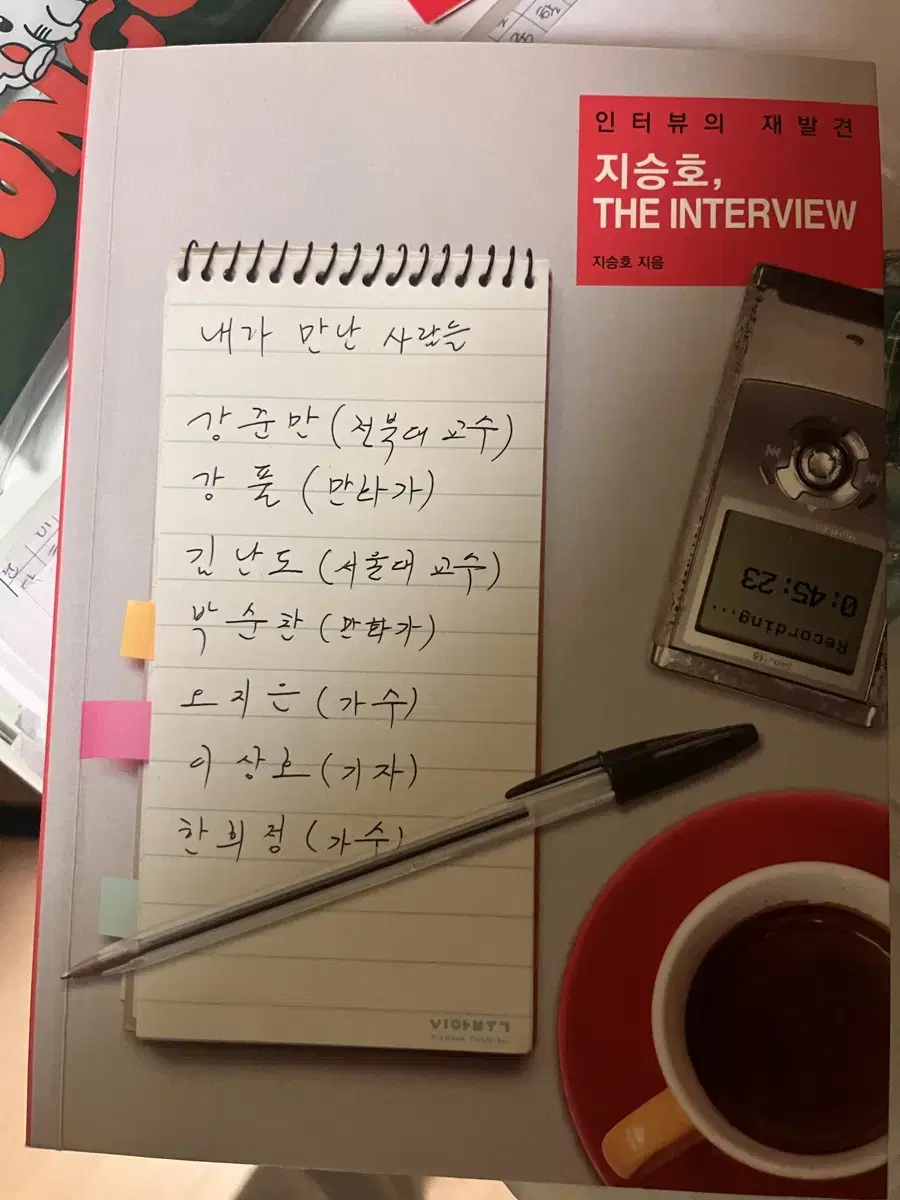 인터뷰의 재발견
지승호,
THE INTERVIEW
지승호 지음
내가 만난 사람들
강준만 (전북대 교수)
강풀 (만화가)
김난도 (서울대 교수)
박순찬 (만화가)
오지은 (가수)
이상호 (기자)
한희정 (가수)
Recording...
0:45:23